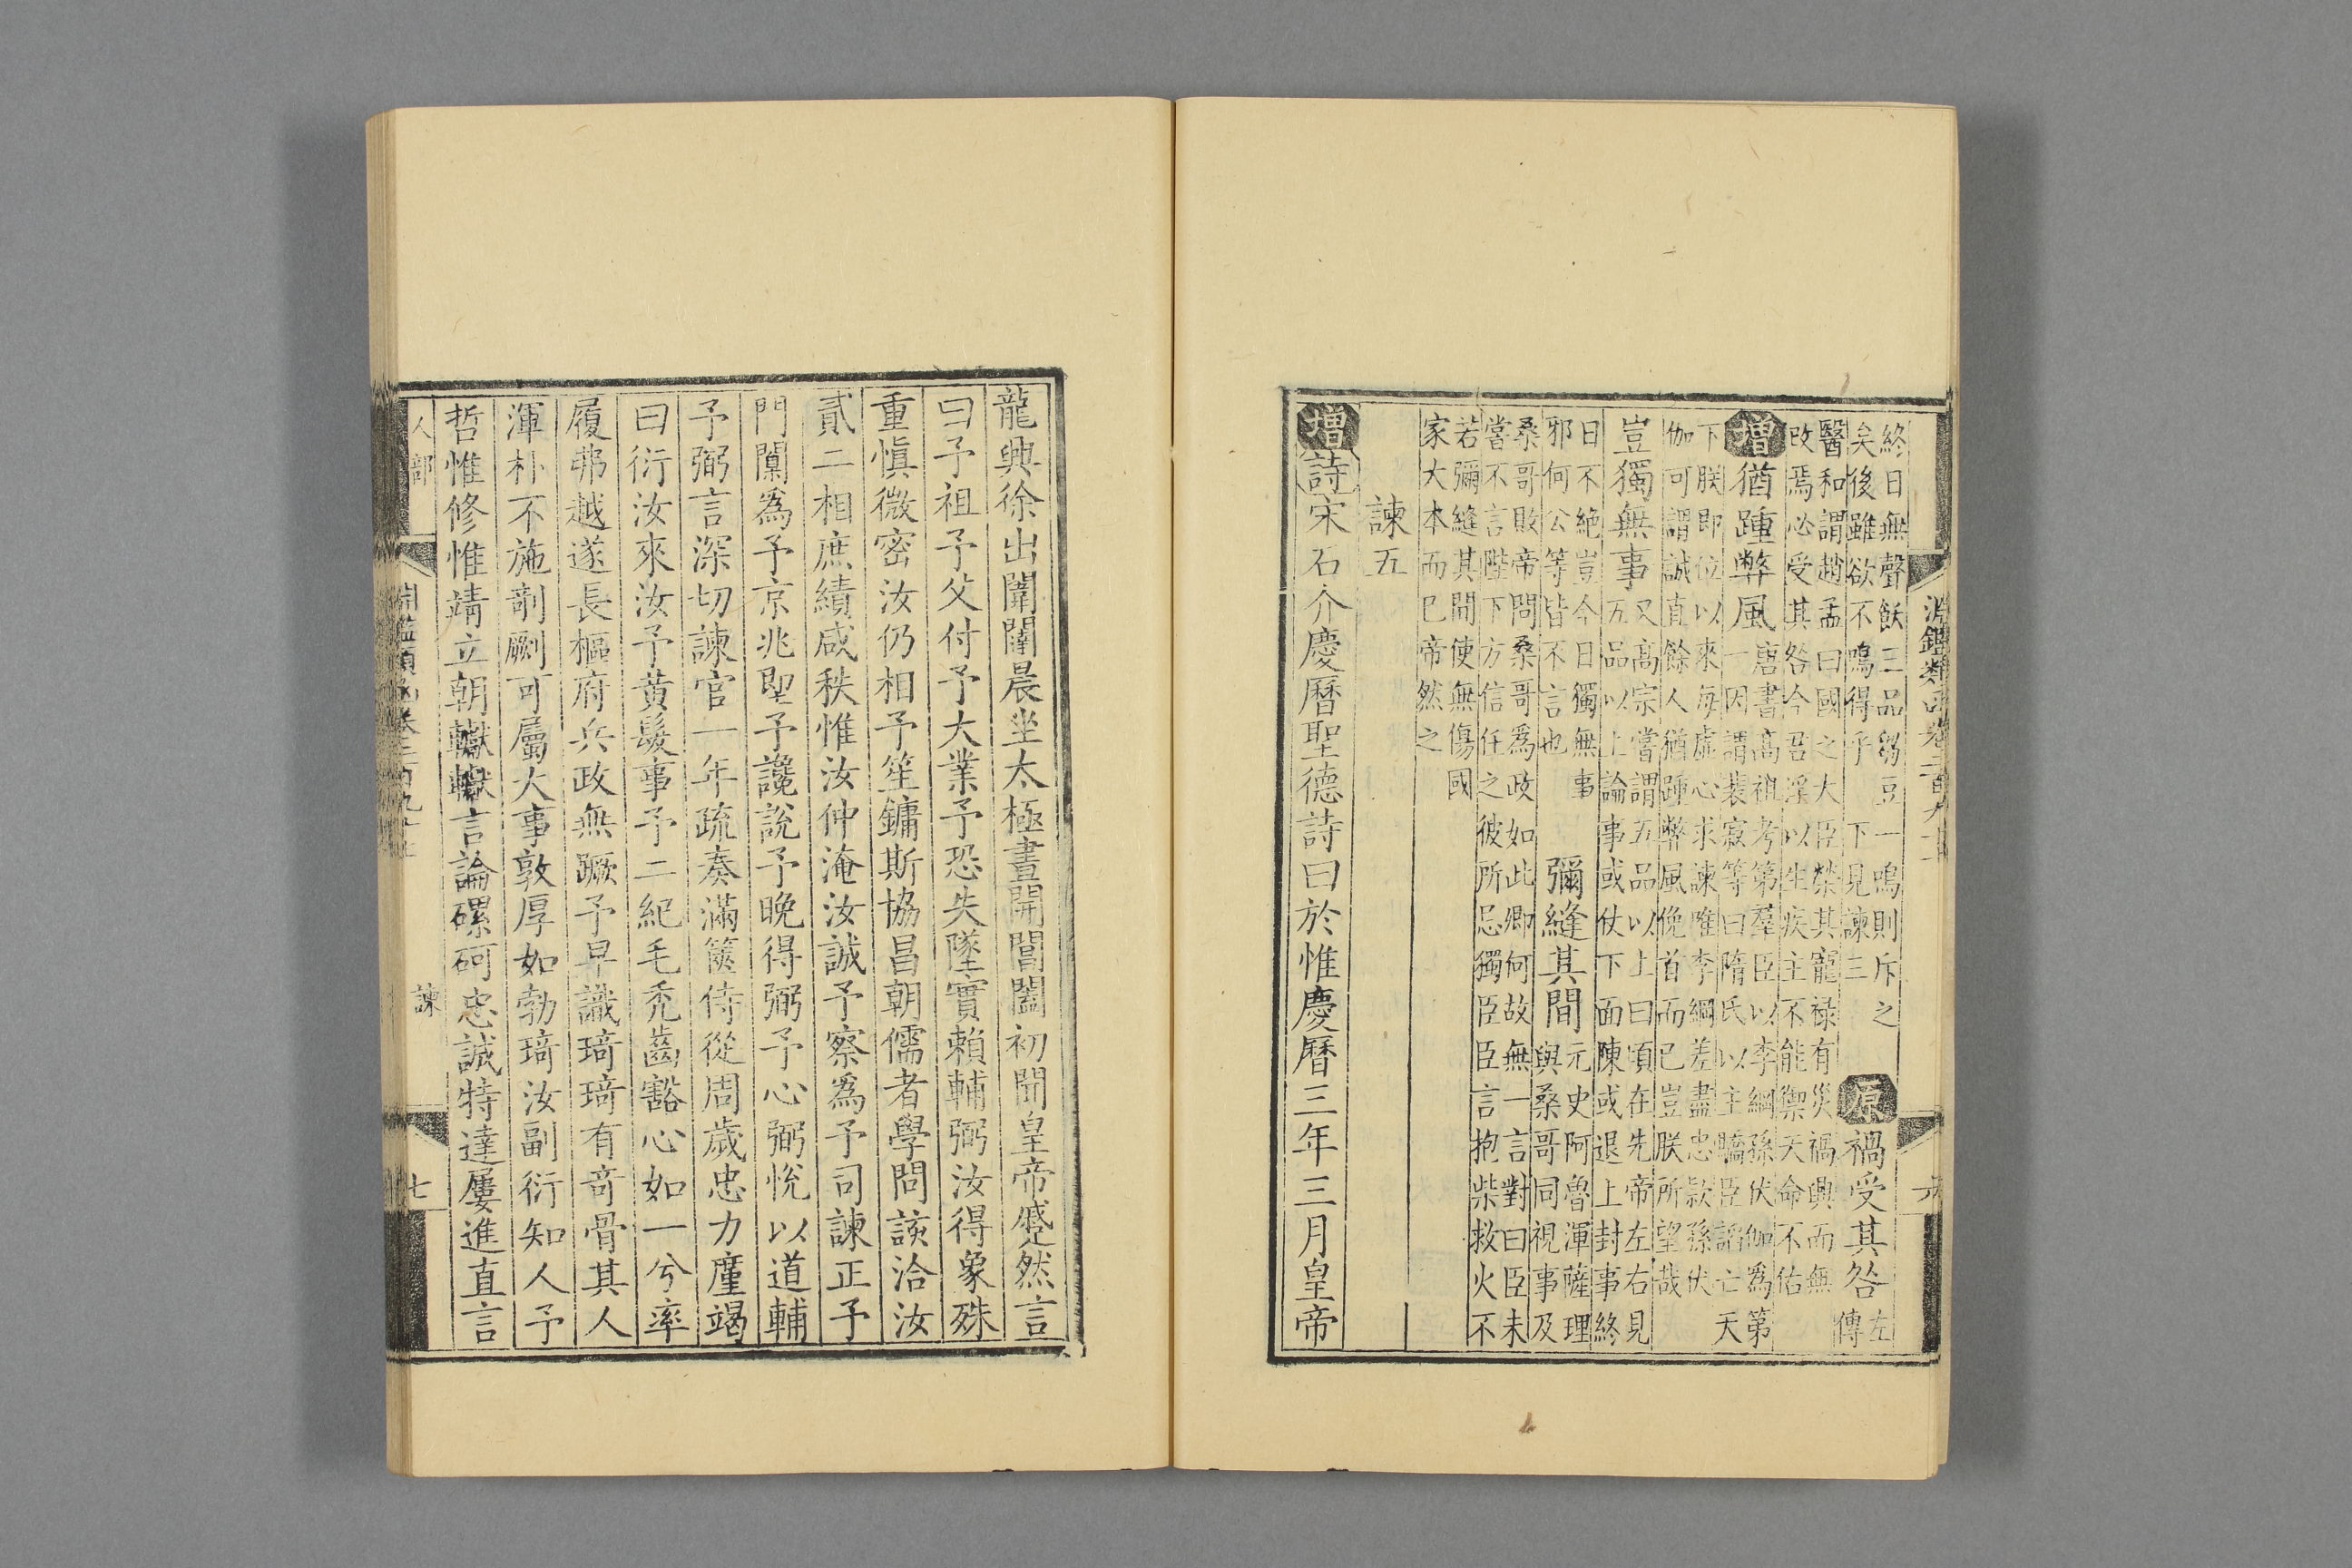 終日無聲飫三品芻豆一鳴則斥之
矣後雖欲不鳴得乎 下見諫三
原禍受其咎
左
傳
醫和謂趙孟曰國之大臣榮其寵祿有災禍興而無
改焉必受其咎今君淫以生疾主不能禦天命不佑
增猶踵弊風
唐書高祖考第羣臣以李綱孫伏伽爲第
一因謂裴寂等曰隋氏以主驕臣諂亡天
下朕即位以來每虛心求諫唯李綱差盡忠款孫伏
伽可謂誠直餘人猶踵弊風俛首而已豈朕所望哉
豈獨無事
又高宗嘗謂五品以上曰頃在先帝左右見
五品以上論事或仗下面陳或退上封事終
日不絶豈今日獨無事
邪何公等皆不言也
彌縫其間
元史阿魯渾薩理
與桑哥同視事及
桑哥敗帝問桑哥爲政如此卿何故無一言對曰臣未
嘗不言陛下方信任之彼所忌獨臣臣言一抱柴救火不
若彌縫其間使無傷國
家大本而已帝然之
諫五
增詩宋石介慶曆聖德詩曰於惟慶曆三年三月皇帝
龍興徐出闈闥晨坐太極晝開閶闔初聞皇帝蹙然言
曰予祖予父付予大業予恐失墜實賴輔弼汝得象殊
重愼微密汝仍相予笙鏞斯協昌朝儒者學問該洽汝
貳二相庶績咸秩惟汝仲淹汝誠予察爲予司諫正予
門闑爲予京兆聖予讒說予晚得弼予心弼悅以道輔
予弼言深切諫官一年疏奏滿篋侍從周歲忠力廑竭
曰衍汝來汝予黃髮事予二紀毛禿齒豁心如一兮率
履弗越遂長樞府兵政無蹶予早識琦琦有奇骨其人
渾朴不施剞劂可屬大事敦厚如勃琦汝副衍知人予
哲惟修惟靖立朝轍轍言論磥砢忠誠特達屢進直言
人部
諫
七